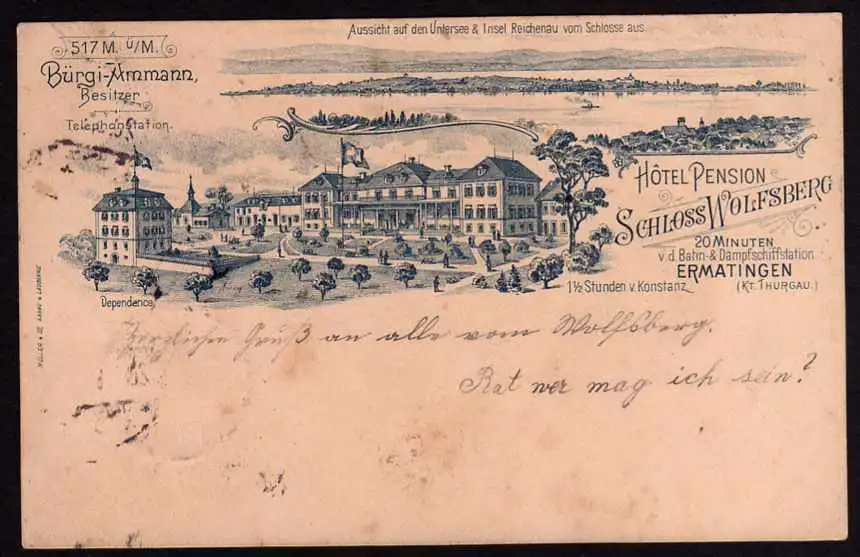 Aussicht auf den Untersee & Insel Reichenau vom Schlosse aus.
517 M. ü/M.
Bürgi-Ammann,
Besitzer
Telephonstation.
HÔTEL PENSION
SCHLOSS WOLFSBERG
20 MINUTEN
v. d. Bahn- & Dampfschiffstation
ERMATINGEN
1½ Stunden v. Konstanz
(KT. THURGAU.)
Dependence
MÜLLER & CIE AARAU &
Herzlichen Gruß an alle vom Wolfsberg.
Rat wer mag ich sein?